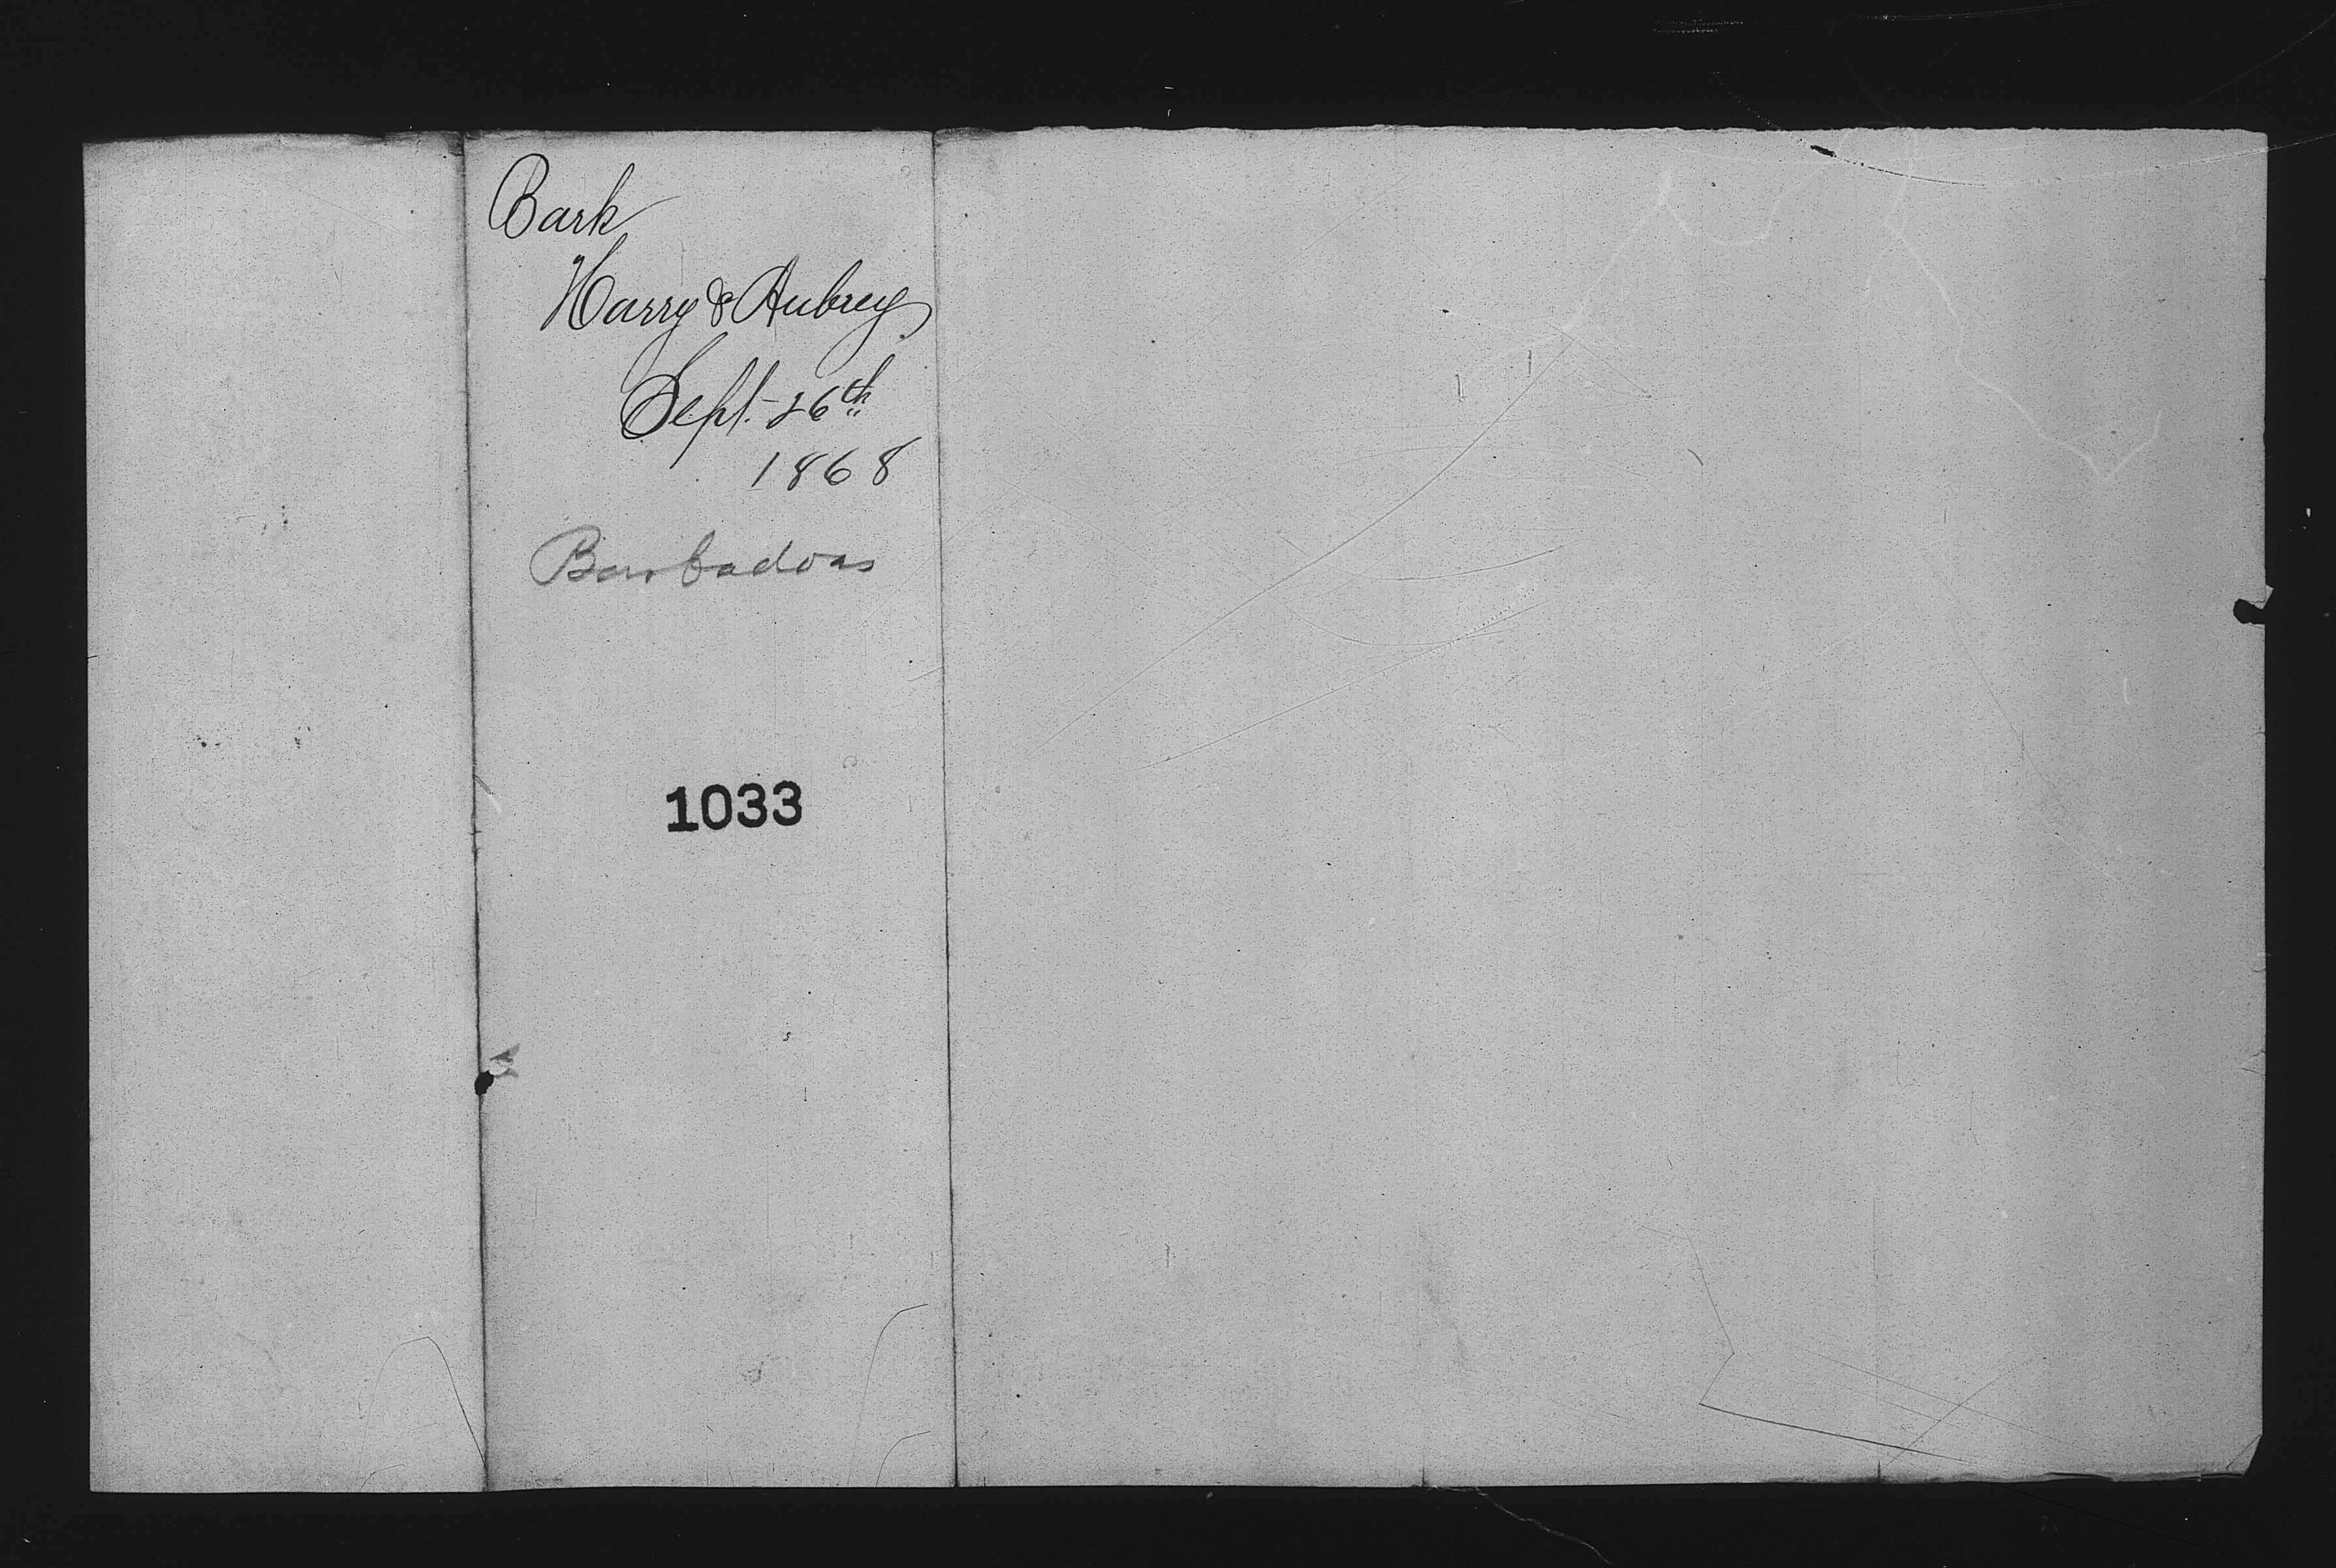 Bark
Harry & Aubrey
Sept. 26th
1868
Barbadoas
1033